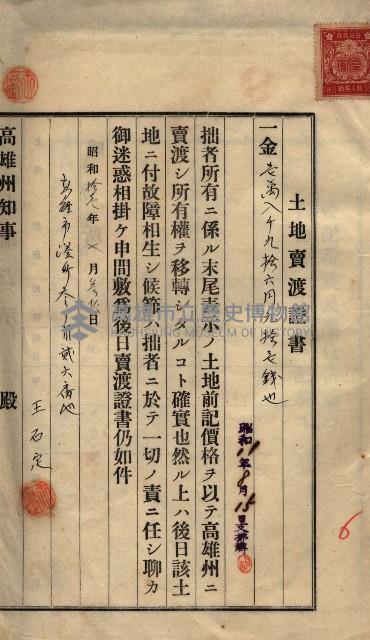 土地賣渡證書
一金壱萬八千九拾六円九拾七錢也
昭和11年8月15日
拙者所有ニ係ル末尾表示ノ土地前記價格ヲ以テ高雄州ニ
賣渡シ所有權ヲ移轉シタルコト確實也然ル上ハ後日該土
地ニ付故障相生シ候節ハ拙者ニ於テ一切ノ責ニ任シ聊カ
御迷惑相掛ケ申間敷爲後日賣渡證書仍如件
昭和拾 年 月 日
高雄市 番地
王石定
高雄州知事 殿
6
高雄市立歷史博物館
KAOHSIUNG MUSEUM OF HISTORY